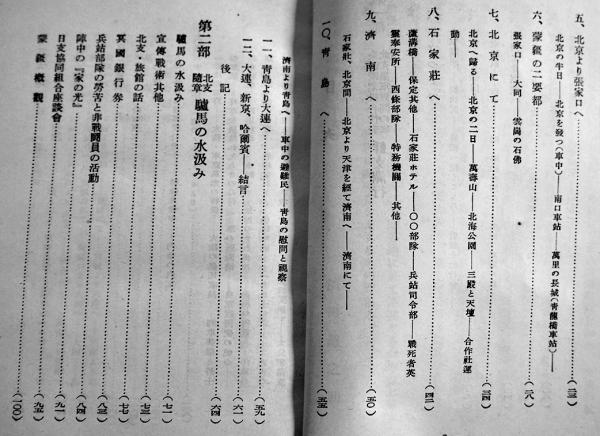 五、北京より張家口へ……(二三)
北京の半日――北京を發つ(車中)――南口車站――萬里の長城(青龍橋車站)――
六、蒙疆の二要都……(二八)
張家口――大同――雲崗の石佛
七、北京にて……(三四)
北京へ歸る――北京の二日――萬壽山――北海公園――三殿と天壇――合作社運
動――
八、石家莊へ……(四二)
蘆溝橋――保定其他――石家莊ホテル――〇〇部隊――兵站司令部――戰死者英
靈奉安所――西條部隊――特務機關――其他――
九、濟南へ……(五〇)
石家莊、北京間――北京より天津を經て濟南へ――濟南にて――
一〇、青島へ……(五五)
濟南より青島へ――車中の避難民――青島の慰問と視察
一一、青島より大連へ……(五九)
一二、大連、新京、哈爾賓――結言……(六二)
後記……(六四)
第二部 北支隨章 驢馬の水汲み
驢馬の水汲み……(七一)
宣傳戰術其他……
北支、旅館の話……(七三)
冥國銀行券……(七七)
兵站部隊の勞苦と非戰鬪員の活動……(八二)
陣中の『家の光』……(八四)
日支協同組合座談會……(九一)
蒙疆概觀……(九五)
(一〇〇)